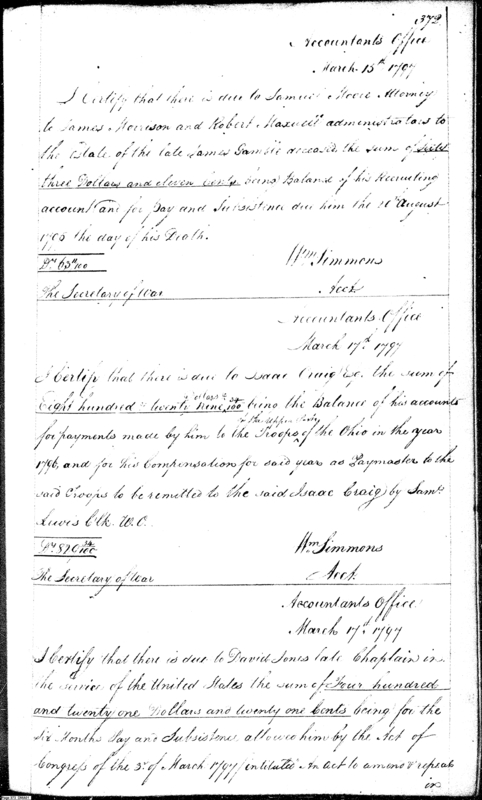 372
Accountants Office
March 15th 1797
I Certify that there is due to Samuel Attorney
to James Morrison and Robert Maxwell administrators to
the Estate of the late James Gamble deceased the sum of Sixty
three Dollars and eleven Cents being Balance of his Recruiting
account and for Pay and Subsistence due him the 10th August
1795 the day of his Death.
Drs 63 11/100 Wm Simmons
The Secretary of War Acct
Accountants Office
March 17th 1797
I Certify that there is due to Isaac Craig Esq. the sum of
Dollars & 34
Eight hundred & twenty nine /100 being the Balance of his accounts
for payments made by him to the Troops of the Ohio in the year
1796, and for his Compensation for said year as Paymaster to the
said Troops to be remitted to the said Isaac Craig by Saml
Lewis Clk. W.O.
Drs 34/100 Wm Simmons
The Secretary of War Acct
Accountants Office
March 17th 1797
I Certify that there is due to David Jones late Chaplain in
the service of the United States the sum of Four hundred
and twenty one Dollars and twenty one Cents being for the
Six Months Pay and Subsistence allowed him by the Act of
Congress of the 3d of March 1797 intituled An act to amend & repeal
in